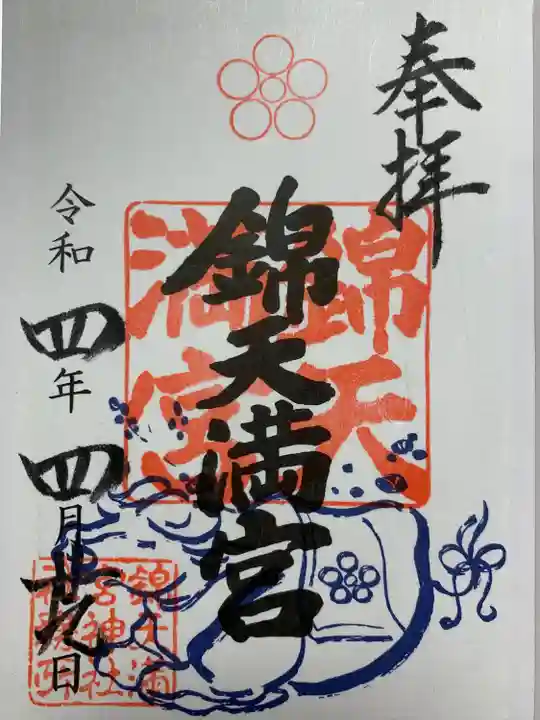 奉拝
錦天満宮
錦天
満宮
令和四年四月廿九日
錦天満
宮神社